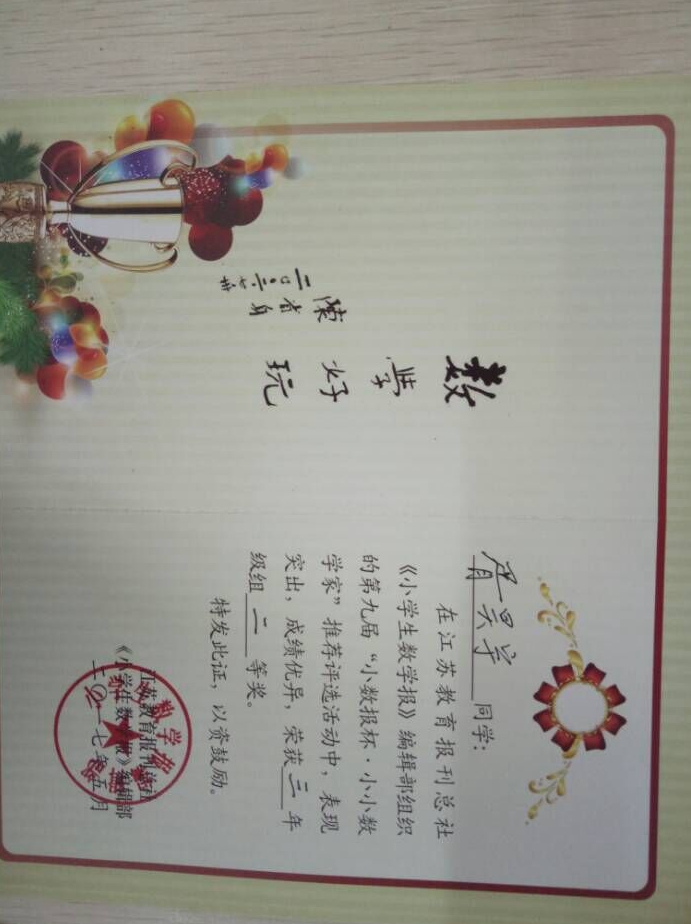 数学好玩
陈省身
二〇〇二·七·廿
同学:
在江苏教育报刊总社
《小学生数学报》编辑部组织
的第九届“小数报杯·小小数
学家”推荐评选活动中,表现
突出,成绩优异,荣获三年
级组二等奖。
特发此证,以资鼓励。
江苏教育报刊总社
《小学生数学报》编辑部
二〇一七年五月